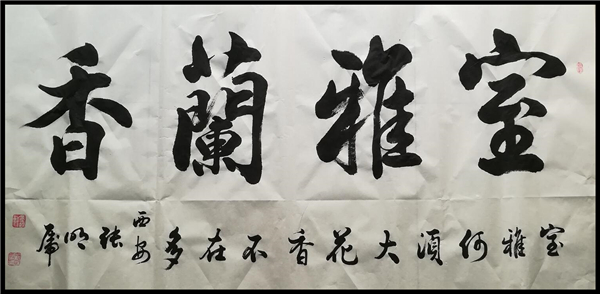 室雅蘭香
室雅何須大花香不在多
西安
張明虎